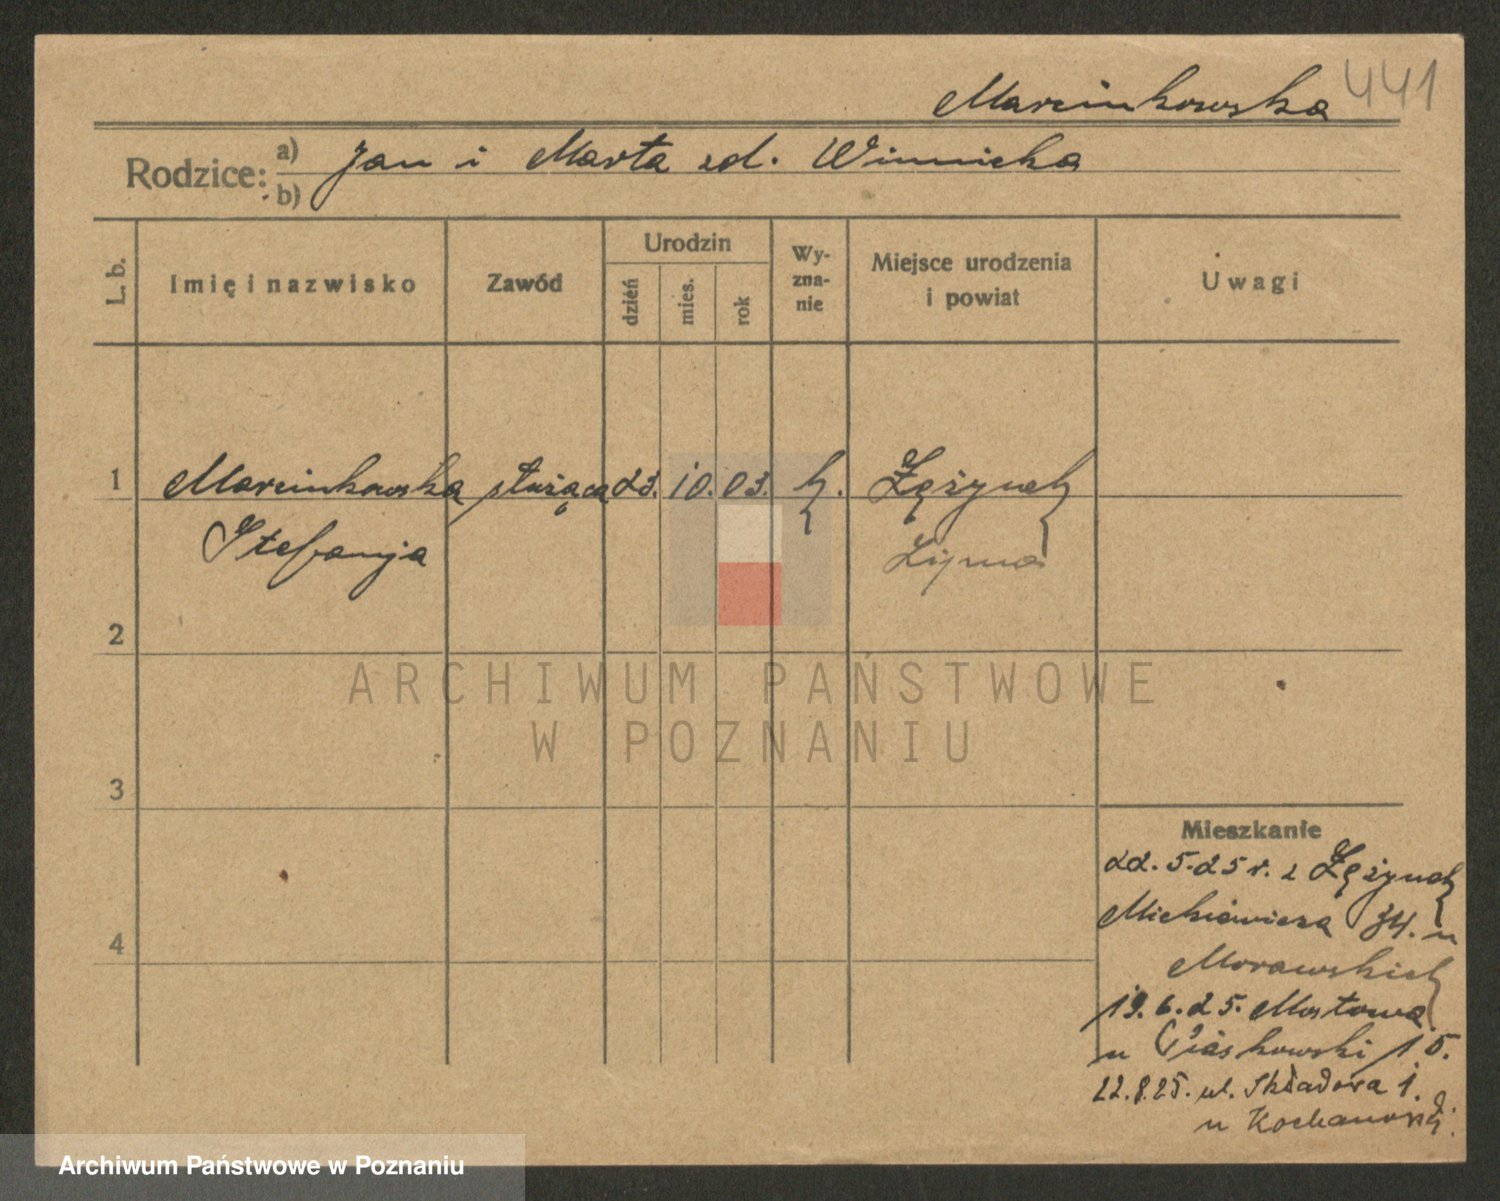 Marcinkowska 441
Rodzice: a) Jan i Marta zd. Winnicka
b)
L. b. Imię i nazwisko Zawód Urodzin dzień mies. rok Wy-zna-nie Miejsce urodzenia i powiat Uwagi
1 Marcinkowska służąca 23. 10. 03. k.
Stefanja
Lipno
2
ARCHIWUM PAŃSTWOWE
W POZNANIU
3
Mieszkanie
22. 5. 25 r. z
Mickiewicza 34. u
4
Morawskich
19. 6. 25. Mostowa
u Piaskowski 15.
22. 8. 25. ul. Składowa 1.
u Kochanowski
Archiwum Państwowe w Poznaniu